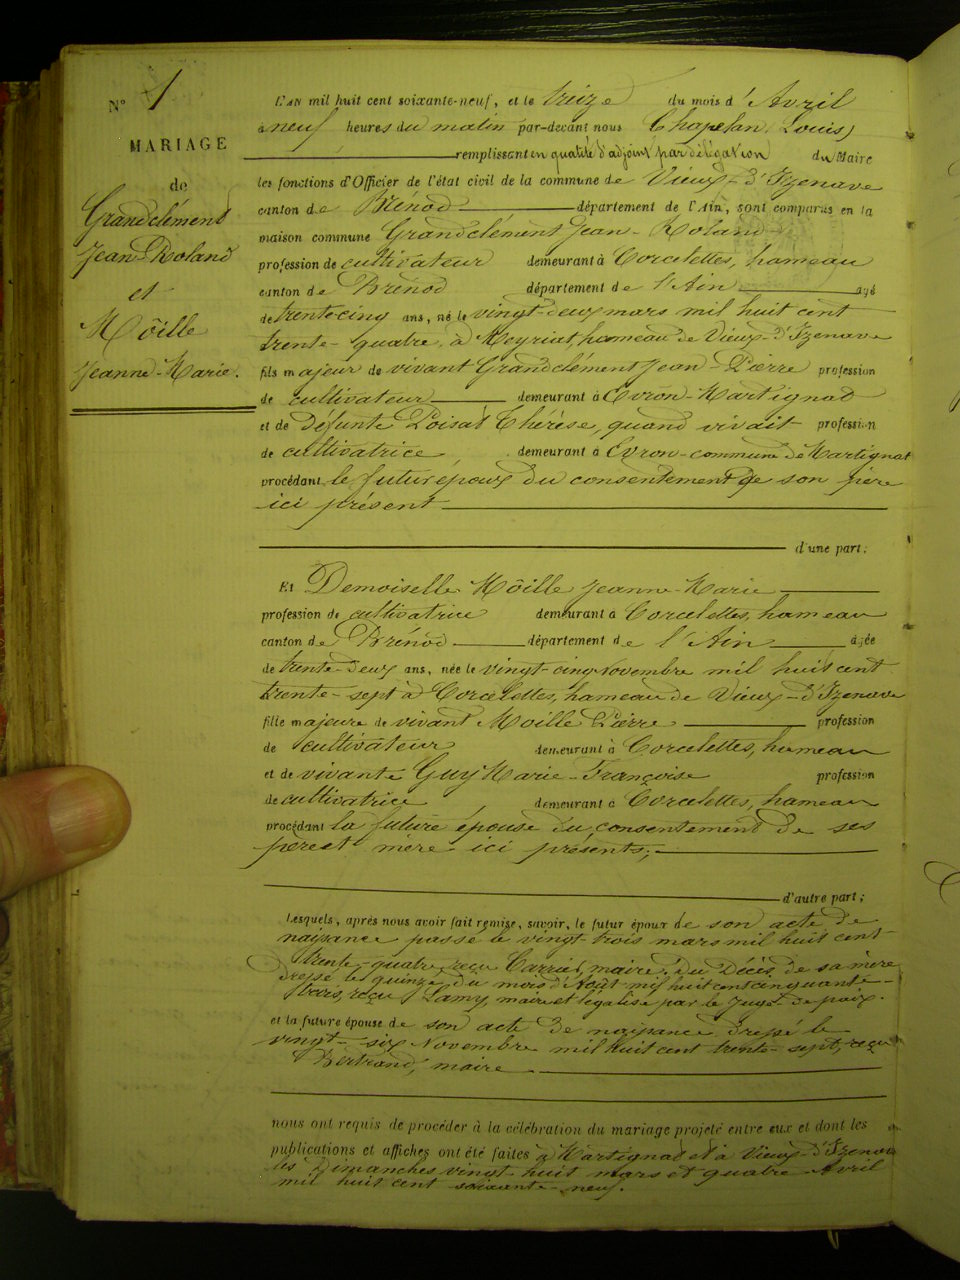 N° 1
MARIAGE
de
Grandclément
Jean-Roland
et
Môille
Jeanne-Marie.
L'AN mil huit cent soixante-neuf, et le treize du mois d'Avril
à neuf heures du matin par-devant nous Chapelan (Louis)
remplissant en qualité d'adjoint par délégation du Maire
les fonctions d'Officier de l'état civil de la commune de Vieux-d'Izenave
canton de Brénod département de l'Ain, sont comparus en la
maison commune Grandclément Jean-Roland
profession de cultivateur demeurant à Corcelettes, hameau
canton de Brénod département de l'Ain agé
de trente cinq ans, né le vingt-deux mars mil huit cent
trente-quatre, à Meyriat, hameau de Vieux-d'Izenave
fils majeur de vivant Grandclément Jean-Pierre profession
de cultivateur demeurant à Evron-Martignat
et de défunte Loisat Thérèse, quand vivait profession
de cultivatrice, demeurant à Evron-commune de Martignat
procédant le futur époux du consentement de son père
ici présent
d'une part;
Et Demoiselle Môille Jeanne-Marie
profession de cultivatrice demeurant à Corcelettes, hameau
canton de Brénod département de l'Ain agée
de trente-deux ans, née le vingt-cinq Novembre mil huit cent
trente-sept à Corcelettes, hameau de Vieux-d'Izenave
fille majeure de vivant Moille Pierre profession
de cultivateur demeurant à Corcelettes, hameau
et de vivante Guy Marie-Françoise profession
de cultivatrice, demeurant à Corcelettes, hameau
procédant la future épouse du consentement de ses
père et mère ici présents;
d'autre part;
Lesquels, après nous avoir fait remise, savoir, le futur époux de son acte de
naissance passé le vingt trois mars mil huit cent
trente-quatre, reçu Carrier, maire; du Décès de sa mère
dressé le quinze du mois d'Août mil huit cent cinquante-
trois, reçu Lamy, maire et légalisé par le Juge de paix.
et la future épouse de son acte de naissance dressé le
vingt-six Novembre mil huit cent trente-sept, reçu
Bertrand, maire
nous ont requis de procéder à la célébration du mariage projeté entre eux et dont les
publications et affiches ont été faites à Martignat et à Vieux-d'Izenave
les Dimanches vingt-huit mars et quatre Avril
mil huit cent soixante-neuf.